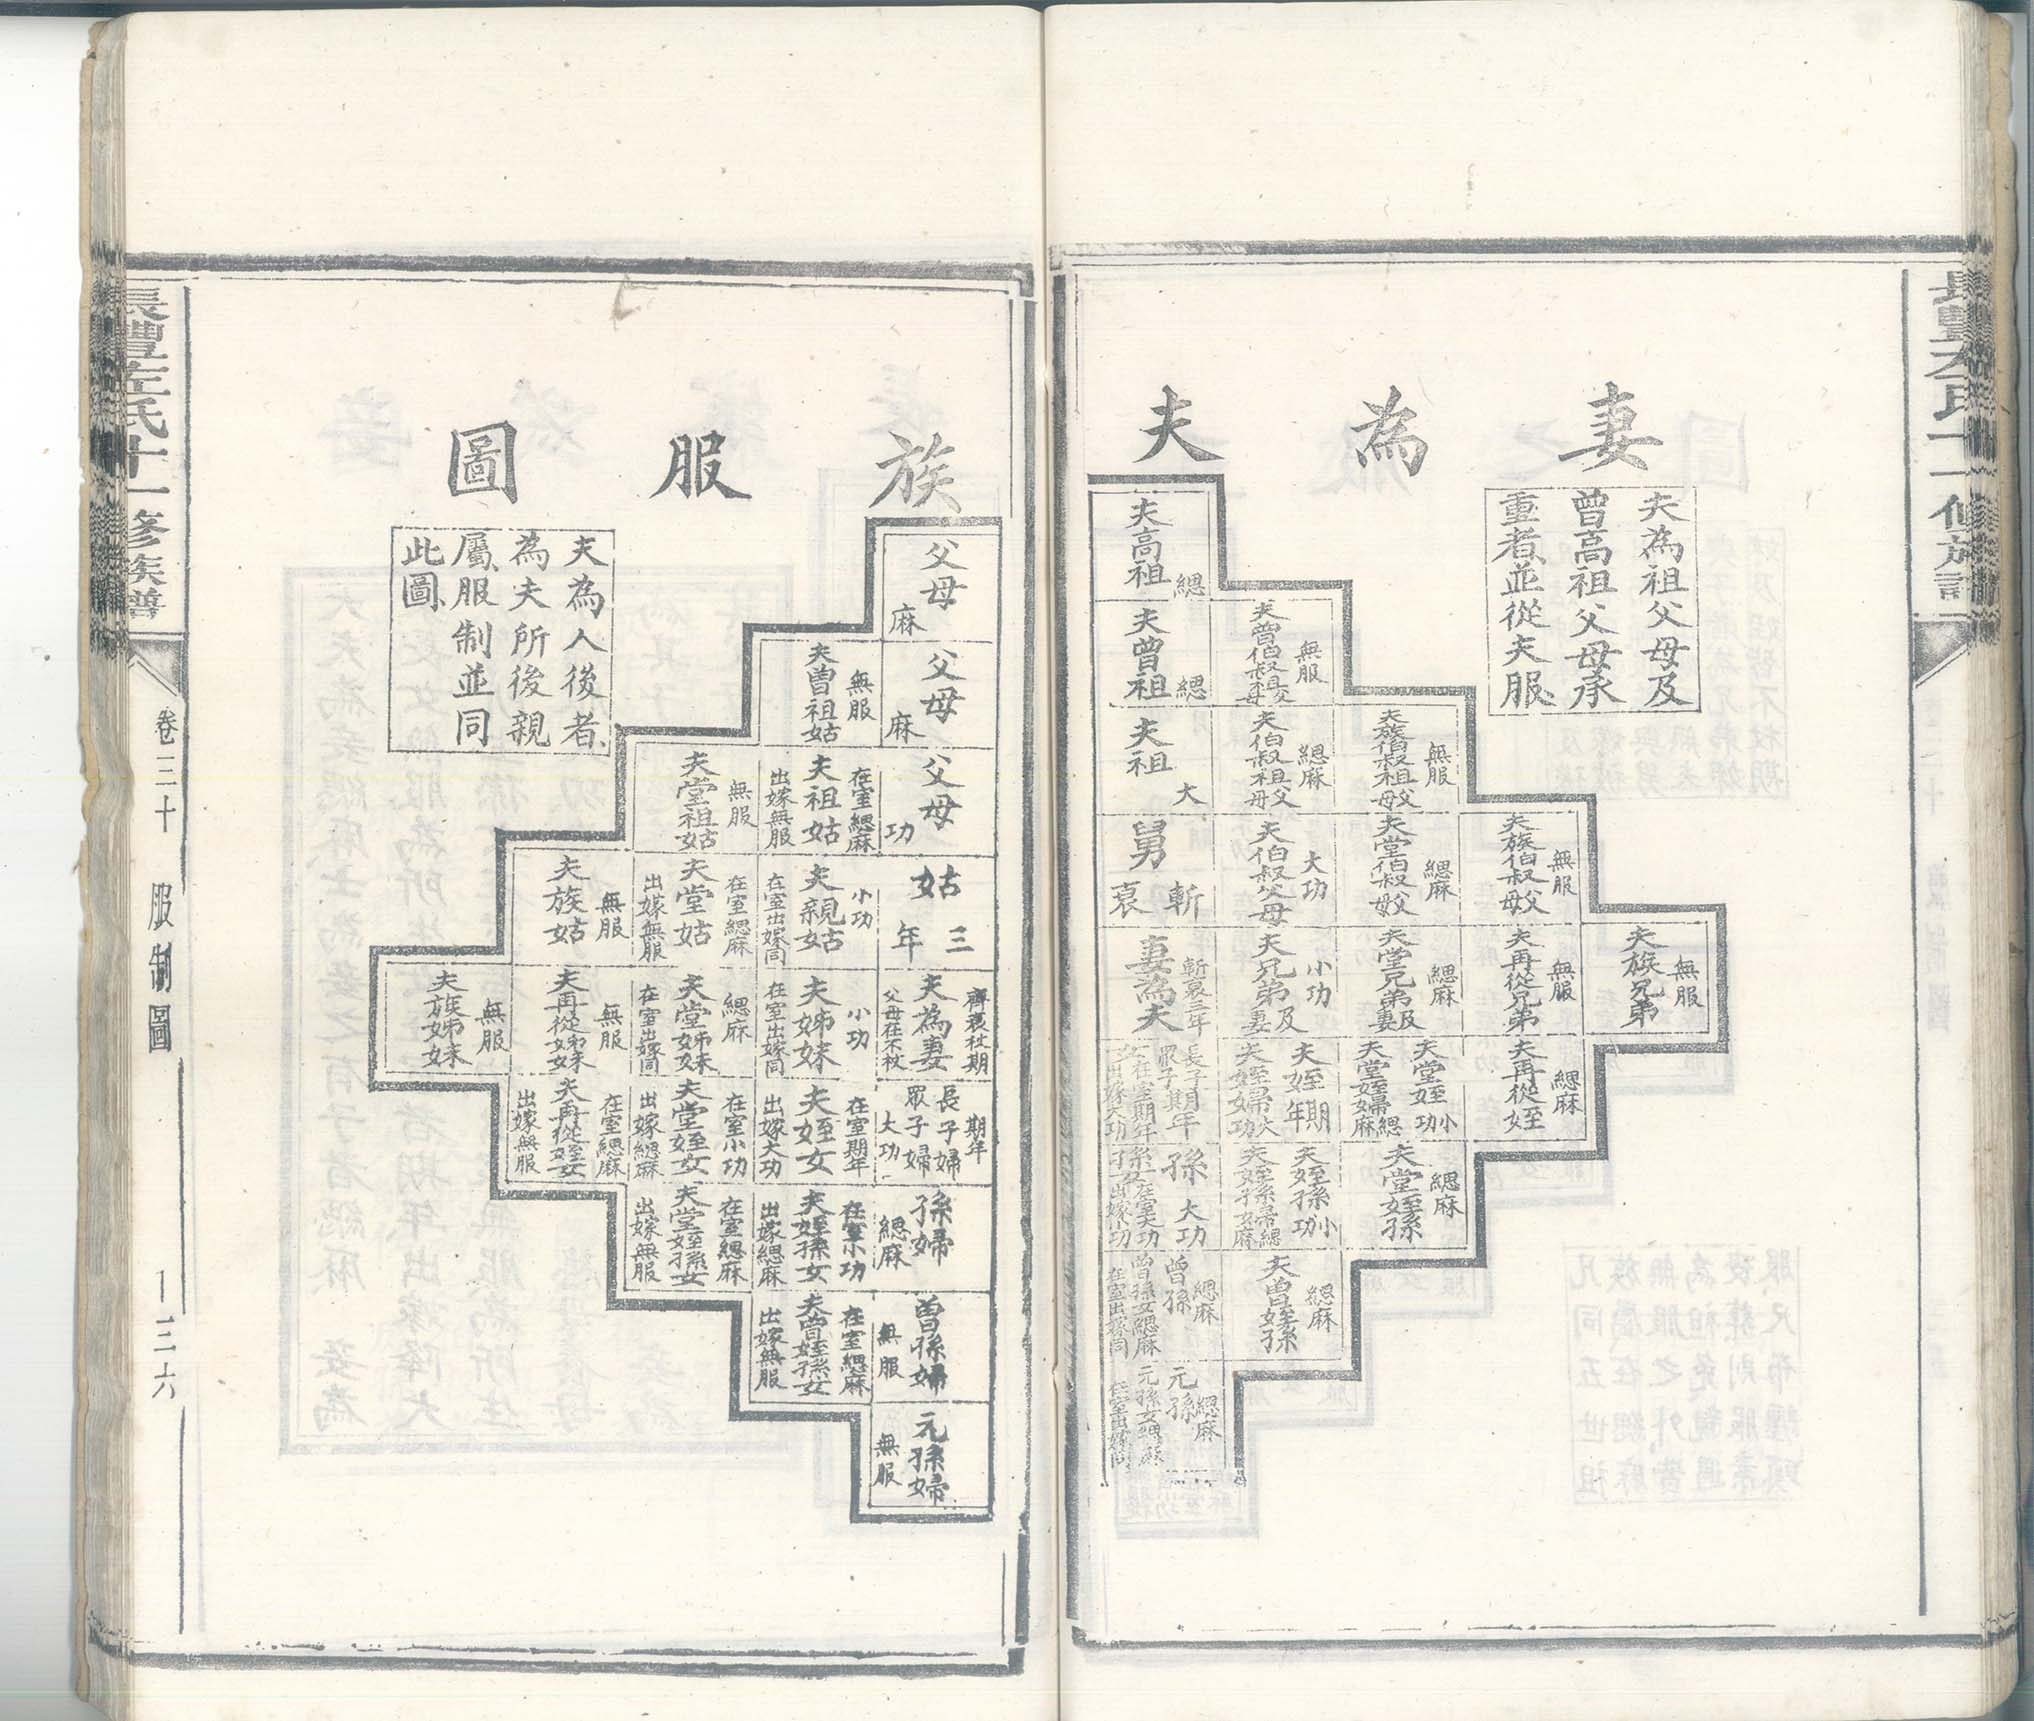 妻為夫
夫為祖父母及
曾高祖父母承
重者並從夫服
夫族兄弟 無服
夫族伯叔父母 無服
夫再從兄弟 無服
夫再從姪 緦麻
夫族伯叔祖父母 無服
夫堂伯叔父母 緦麻
夫堂兄弟及妻 緦麻
夫堂姪 小功
夫堂姪婦 緦麻
夫堂姪孫 緦麻
夫曾伯叔祖父母 無服
夫伯叔祖父母 緦麻
夫伯叔父母 大功
夫兄弟及妻 小功
夫姪 期年
夫姪婦 大功
夫姪孫 小功
夫姪孫婦 緦麻
夫曾姪孫 緦麻
夫高祖 緦
夫曾祖 緦
夫祖 大
舅 斬衰
妻為夫 斬衰三年
長子期年
眾子期年
女在室期年
出嫁大功
孫 大功
孫女在室大功
出嫁小功
曾孫 緦麻
曾孫女緦麻
在室出嫁同
元孫 緦麻
元孫女緦麻
在室出嫁同
族服圖
父母 麻
父母 麻
父母 功
姑 三年
夫為妻 齊衰杖期
父母在不杖
長子婦 期年
眾子婦 大功
孫婦 緦麻
曾孫婦 無服
元孫婦 無服
夫曾祖姑 無服
夫祖姑 在室緦麻 出嫁無服
夫親姑 小功 在室出嫁同
夫姊妹 小功 在室出嫁同
夫姪女 在室期年 出嫁大功
夫姪孫女 在室小功 出嫁緦麻
夫曾姪孫女 在室緦麻 出嫁無服
夫堂祖姑 無服
夫堂姑 在室緦麻 出嫁無服
夫堂姊妹 緦麻 在室出嫁同
夫堂姪女 在室小功 出嫁緦麻
夫堂姪孫女 在室緦麻 出嫁無服
夫族姑 無服
夫再從姊妹 無服
夫再從姪女 在室緦麻 出嫁無服
夫族姊妹 無服
夫為人後者
為夫所後親
屬服制並同
此圖
長豐左氏十一修族譜
卷三十 服制圖
一三六